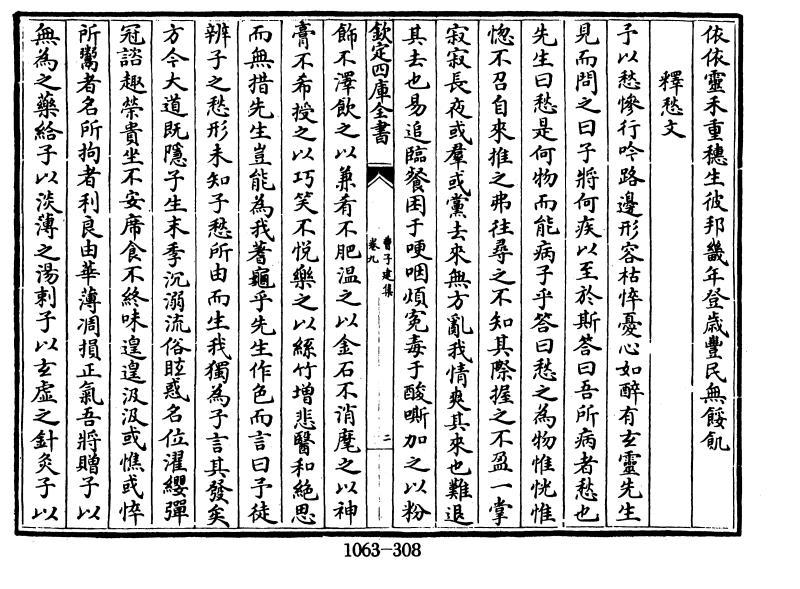 依依靈禾重穗生彼邦畿年登歲豐民無餒飢
釋愁文
予以愁慘行吟路邊形容枯悴憂心如醉有玄靈先生
見而問之曰子將何疾以至於斯答曰吾所病者愁也
先生曰愁是何物而能病子乎答曰愁之為物惟恍惟
惚不召自來推之弗往尋之不知其際握之不盈一掌
寂寂長夜或羣或黨去來無方亂我情爽其來也難退
其去也易追臨餐困于哽咽煩寃毒于酸嘶加之以粉
欽定四庫全書
曹子建集
卷九
二
飾不澤飲之以兼肴不肥温之以金石不消麾之以神
膏不希授之以巧笑不悦樂之以絲竹增悲醫和絶思
而無措先生豈能為我蓍龜乎先生作色而言曰予徒
辨子之愁形未知子愁所由而生我獨為子言其發矣
方今大道既隱子生末季沉溺流俗眩惑名位濯纓彈
冠諮趣榮貴坐不安席食不終味遑遑汲汲或憔或悴
所鬻者名所拘者利良由華薄凋損正氣吾將贈子以
無為之藥給子以淡薄之湯刺子以玄虛之針灸子以
1063—308